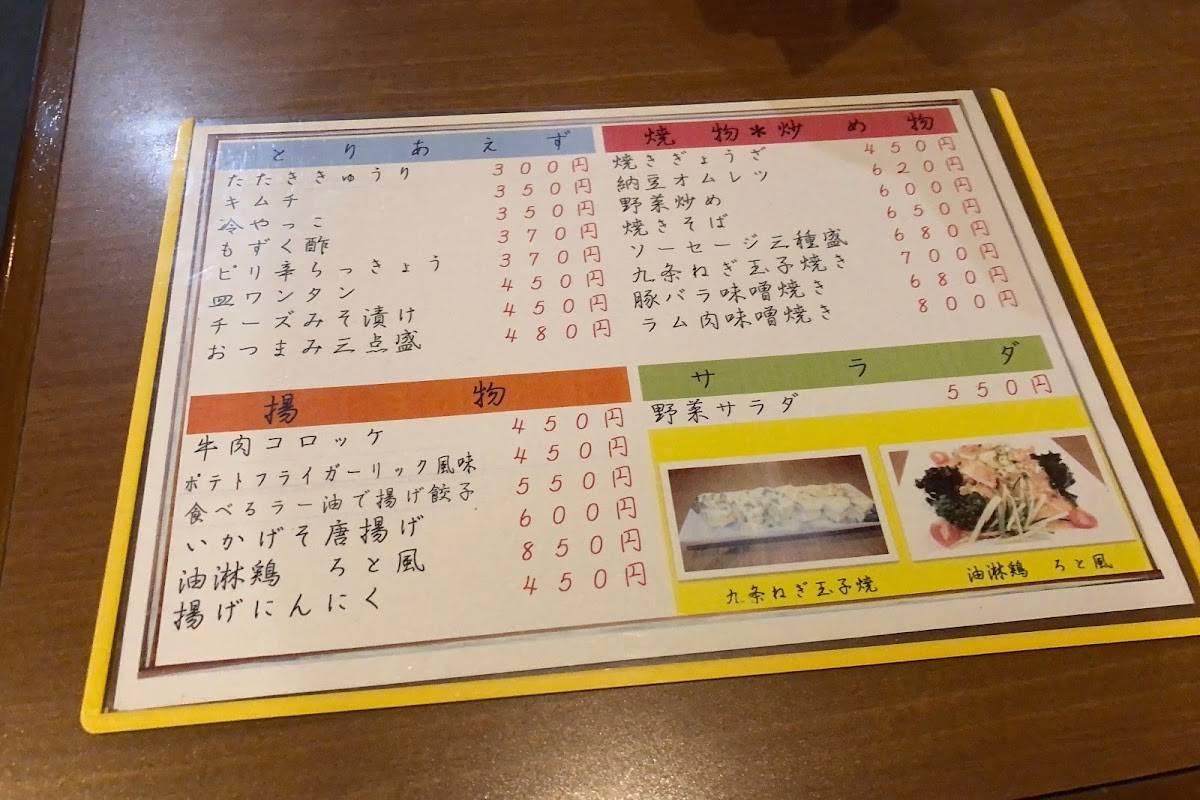 とりあえず
たたききゅうり 300円
キムチ 350円
冷やっこ 350円
もずく酢 370円
ピリ辛らっきょう 370円
皿ワンタン 450円
チーズみそ漬け 450円
おつまみ三点盛 480円
揚物
牛肉コロッケ 450円
ポテトフライガーリック風味 450円
食べるラー油で揚げ餃子 550円
いかげそ唐揚げ 600円
油淋鶏 ろと風 850円
揚げにんにく 450円
焼物*炒め物
焼きぎょうざ 450円
納豆オムレツ 620円
野菜炒め 600円
焼きそば 650円
ソーセージ三種盛 680円
九条ねぎ玉子焼き 700円
豚バラ味噌焼き 680円
ラム肉味噌焼き 800円
サラダ
野菜サラダ 550円
九条ねぎ玉子焼
油淋鶏 ろと風